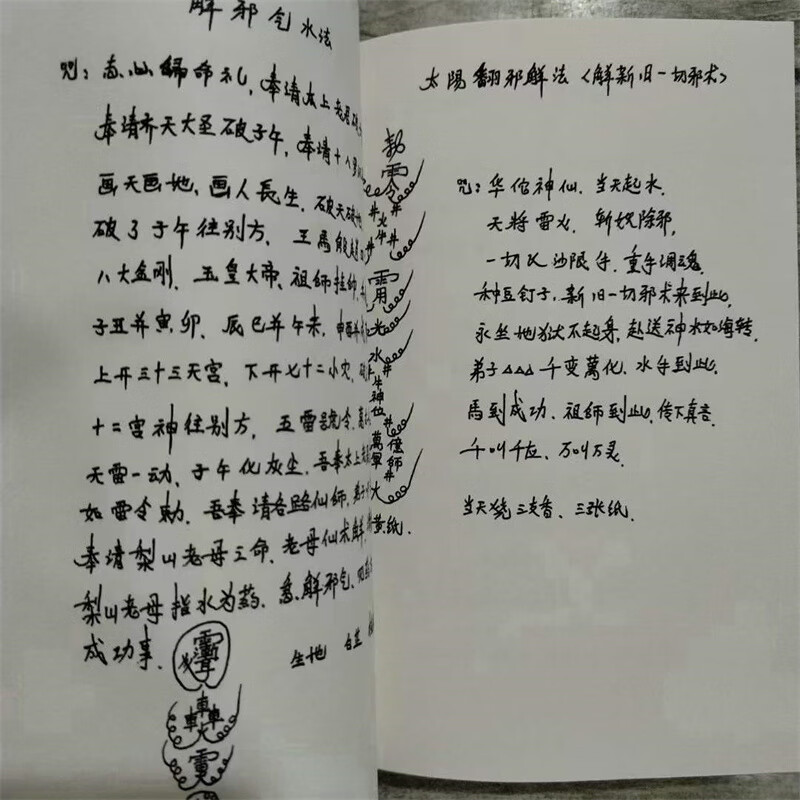 解邪气水法
咒：志心皈命礼，奉请太上老君破
奉请齐天大圣破子午，奉请十八罗
画天画地，画人長生，破天破地
破了子午往别方，王馬殷
八大金刚，玉皇大帝，祖師挂帥，
子丑并寅卯，辰巳并午未，申酉并
上开三十三天宫，下开七十二小灾，
十二宫神往别方，五雷号令，
天雷一动，子午化灰尘，吾奉太上老
如雷令勅，吾奉请各路仙師，弟子
奉请梨山老母三命，老母仙术解
梨山老母指水为药，急解邪气，
成功事。
生地 白芷
車
車車
火
勅
零
井火井
井牛井
霄
光
水
井
牛神位
井
萬億
軍師
井
大
黄纸
太陽翻邪解法〈解新旧一切邪术〉
咒：华佗神仙，当天起水，
天将雷火，斩妖除邪，
一切人沙限手，重手调魂，
种豆钉子，新旧一切邪术来到此，
永坐地狱不起身，赴送神水如海转，
弟子△△△千变萬化，水手到此，
馬到成功，祖師到此，传下真言，
千叫千应，万叫万灵，
当天烧三支香、三张纸，